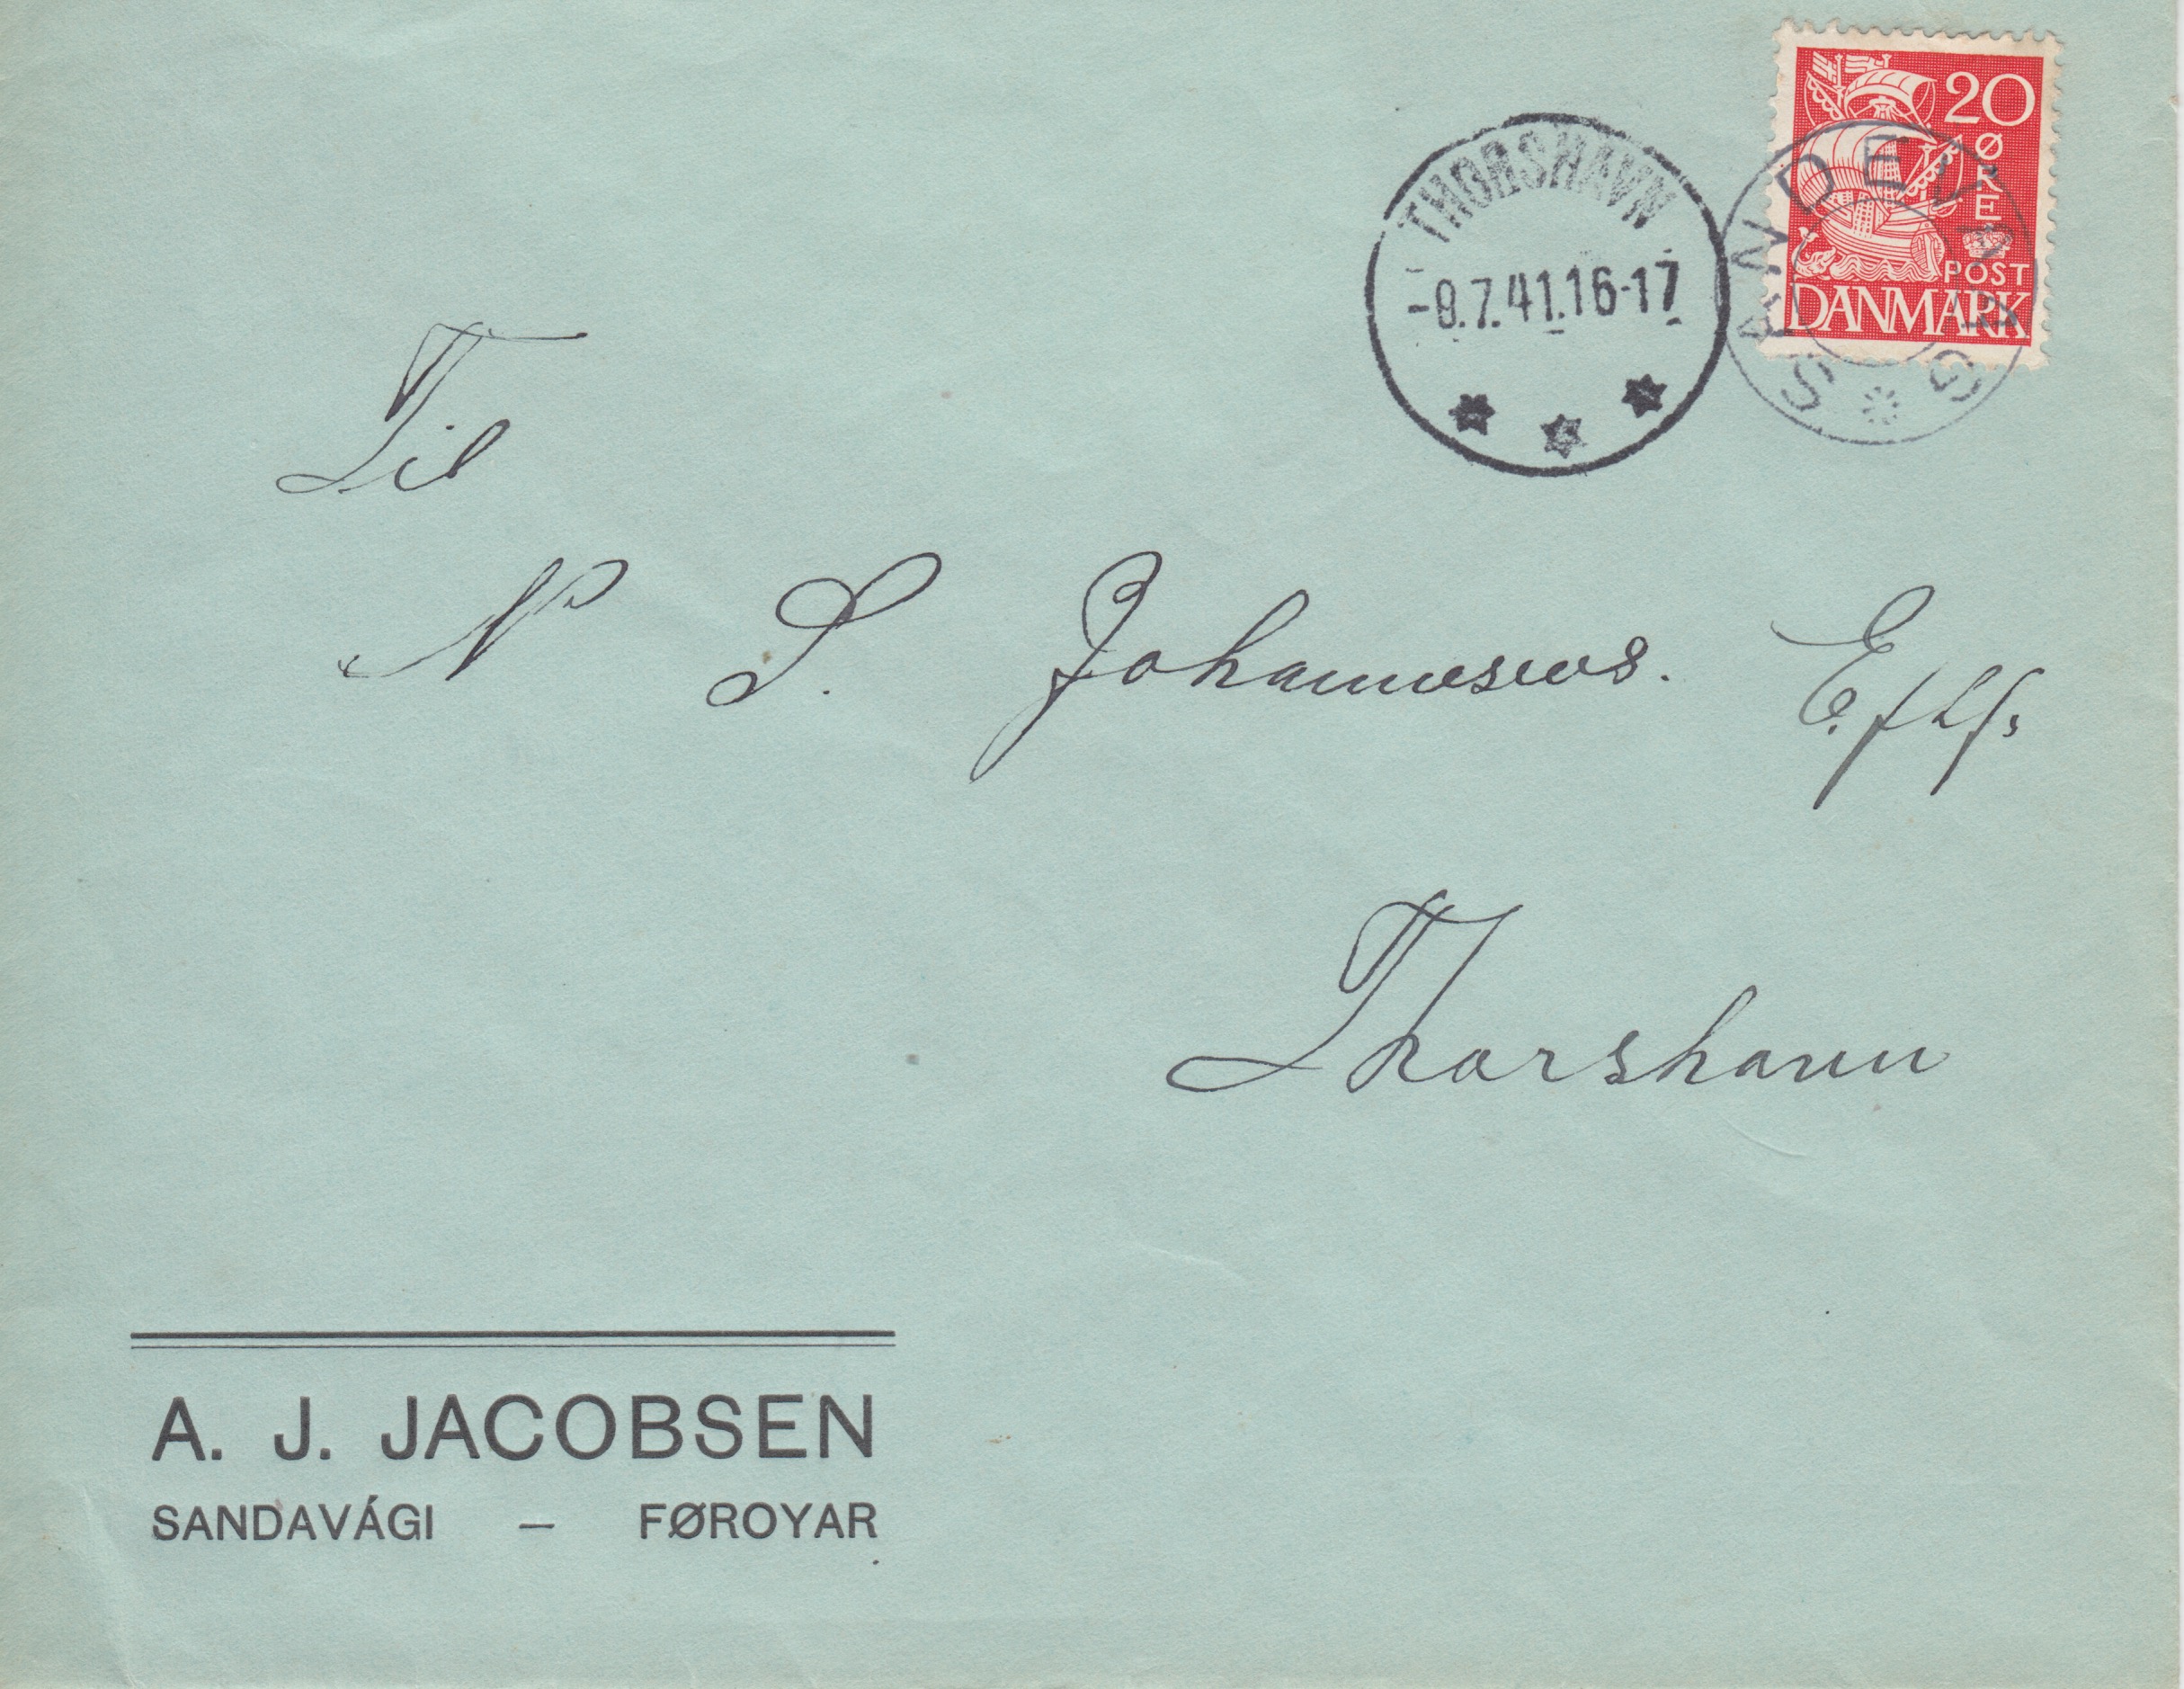 20
ØRE
POST
DANMARK
THORSHAVN
-8.7.41.16-17
SANDEVAAG
Til
N S. Johannesens. Eftf.
Thorshavn
A. J. JACOBSEN
SANDAVÁGI — FØROYAR